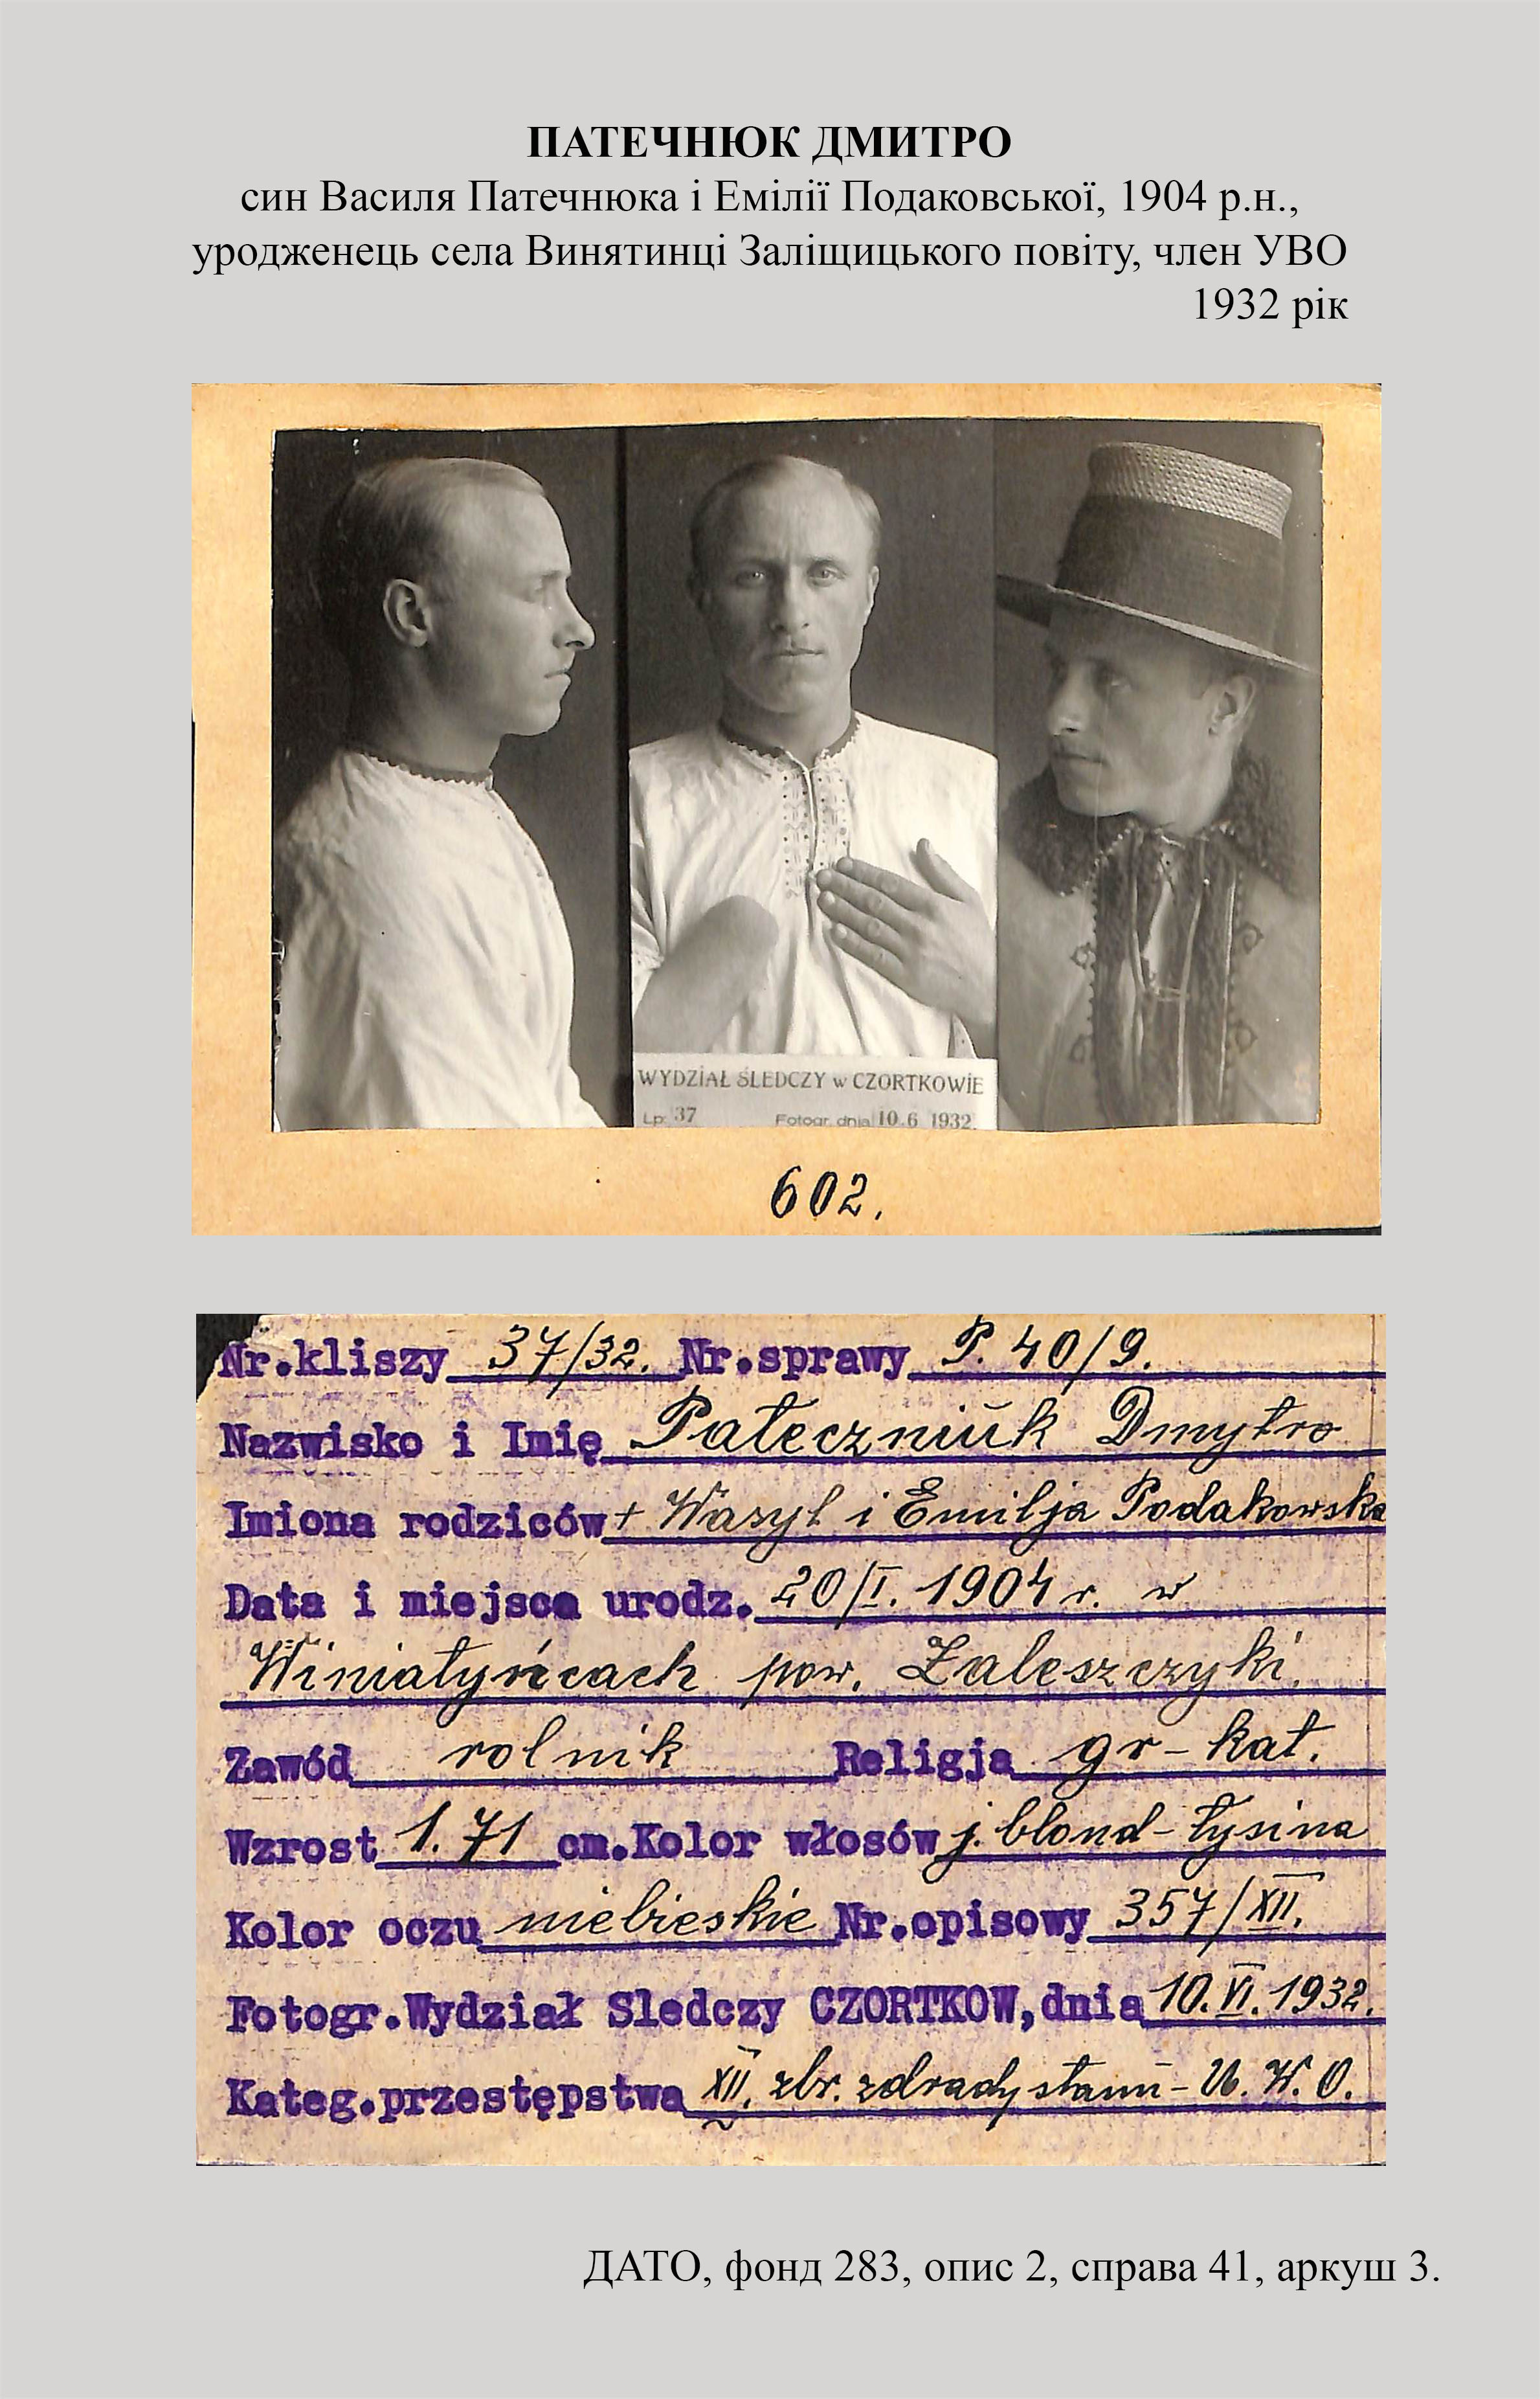 ПАТЕЧНЮК ДМИТРО
син Василя Патечнюка і Емілії Подаковської, 1904 р.н.,
уродженець села Винятинці Заліщицького повіту, член УВО
1932 рік
WYDZIAŁ ŚLEDCZY w CZORTKOWIE
Lp. 37 Fotogr. dnia 10.6 1932
602.
Nr.kliszy 37/32. Nr.sprawy P. 40/9.
Nazwisko i Imię Pateczniuk Dmytro
Imiona rodziców + Wasyl i Emilja Podakowska
Data i miejsce urodz. 20/I. 1904 r. w
Winiatyńcach pow. Zaleszczyki.
Zawód rolnik Religja gr-kat.
Wzrost 1.71 cm. Kolor włosów j. blond-łysina
Kolor oczu niebieskie Nr.opisowy 357/XII.
Fotogr.Wydział Sledczy CZORTKOW, dnia 10.VI.1932.
Kateg.przestępstwa XII. zbr. zdrady stanu - U.W.O.
ДАТО, фонд 283, опис 2, справа 41, аркуш 3.